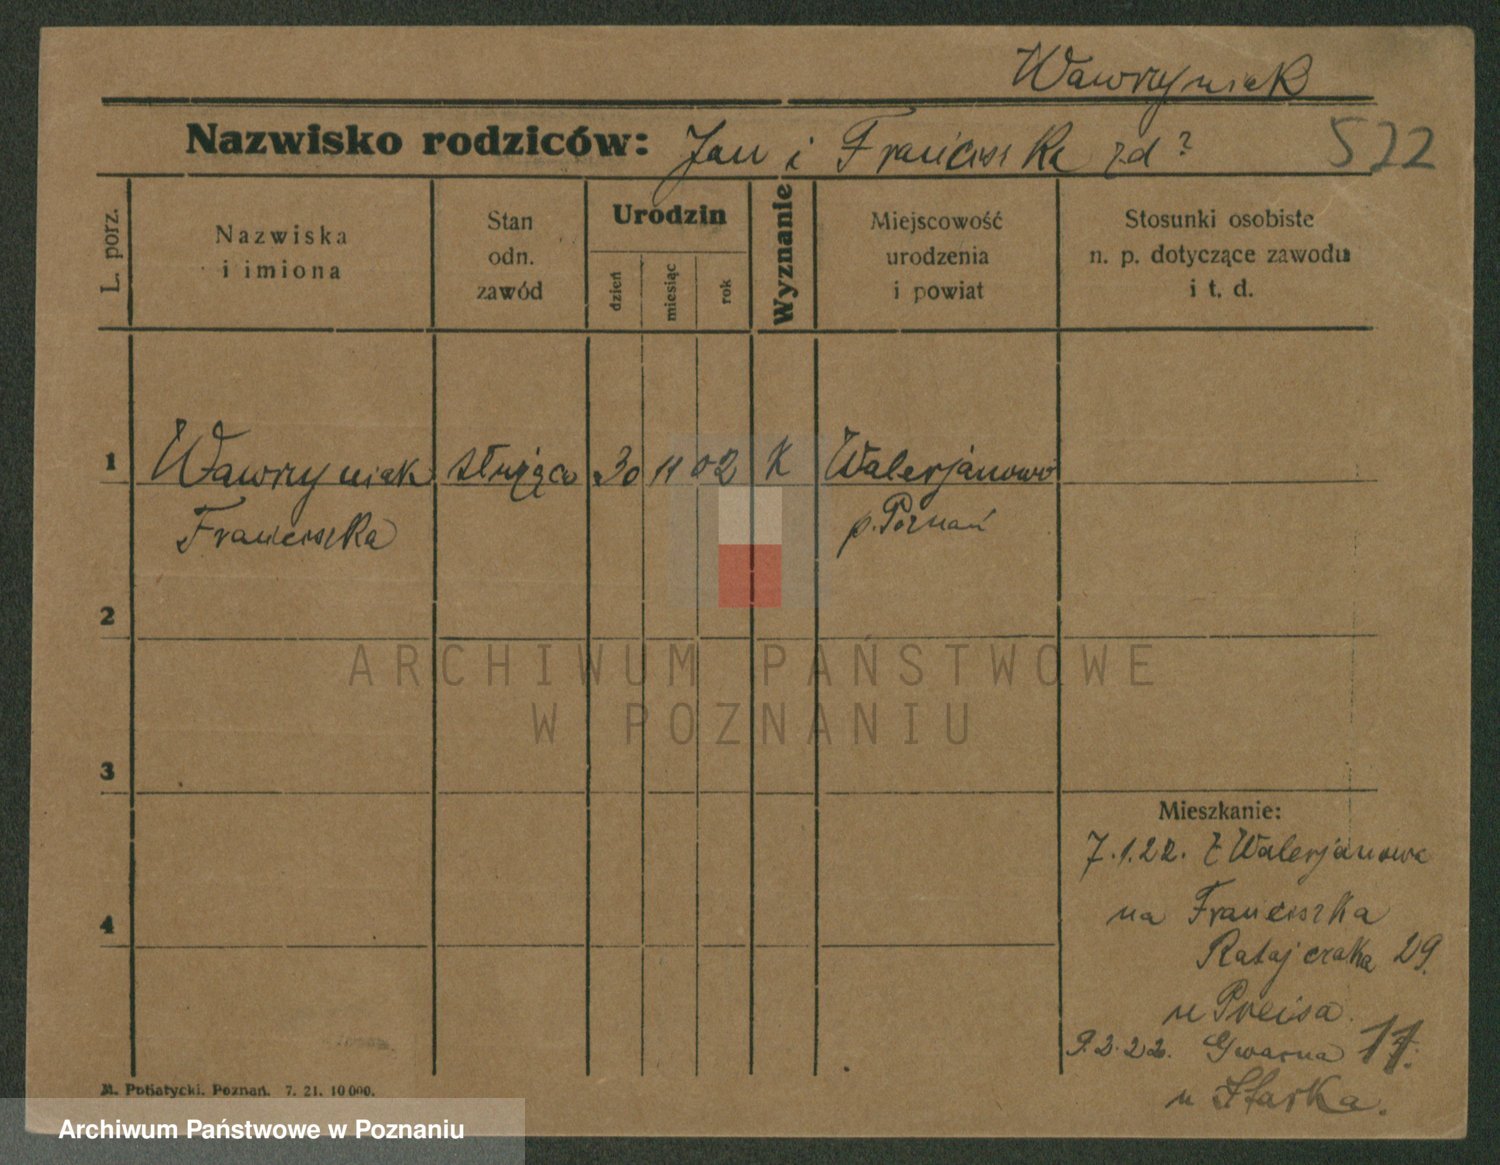 Wawrzyniak
Nazwisko rodziców: Jan i Franciszka zd? 522
L. porz.
Nazwiska
i imiona
Stan
odn.
zawód
Urodzin
dzień
miesiąc
rok
Wyznanie
Miejscowość
urodzenia
i powiat
Stosunki osobiste
n. p. dotyczące zawodu
i t. d.
1 Wawrzyniak służąca 30 11 02 K Walerjanowo
Franciszka p. Poznań
2
ARCHIWUM PAŃSTWOWE
W POZNANIU
3
Mieszkanie:
7.1.22. z Walerjanowa
4
na Franciszka
Ratajczaka 29.
u Preisa.
9.2.22. Gwarna 11.
u
M. Putiatycki. Poznań. 7. 21. 10000.
Archiwum Państwowe w Poznaniu